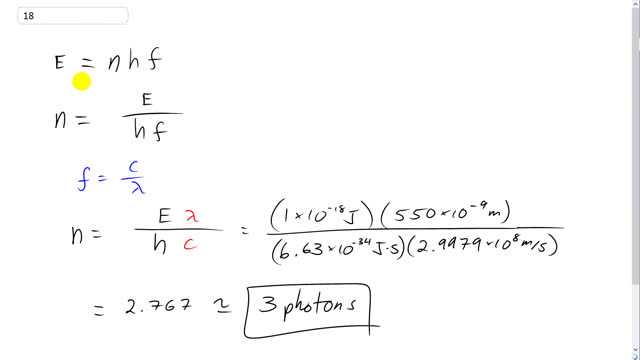 18
E = n h f
n = E / h f
f = c / λ
n = E λ / h c = (1 × 10⁻¹⁸ J) (550 × 10⁻⁹ m) / (6.63 × 10⁻³⁴ J·s) (2.9979 × 10⁸ m/s)
= 2.767 ≃ 3 photons